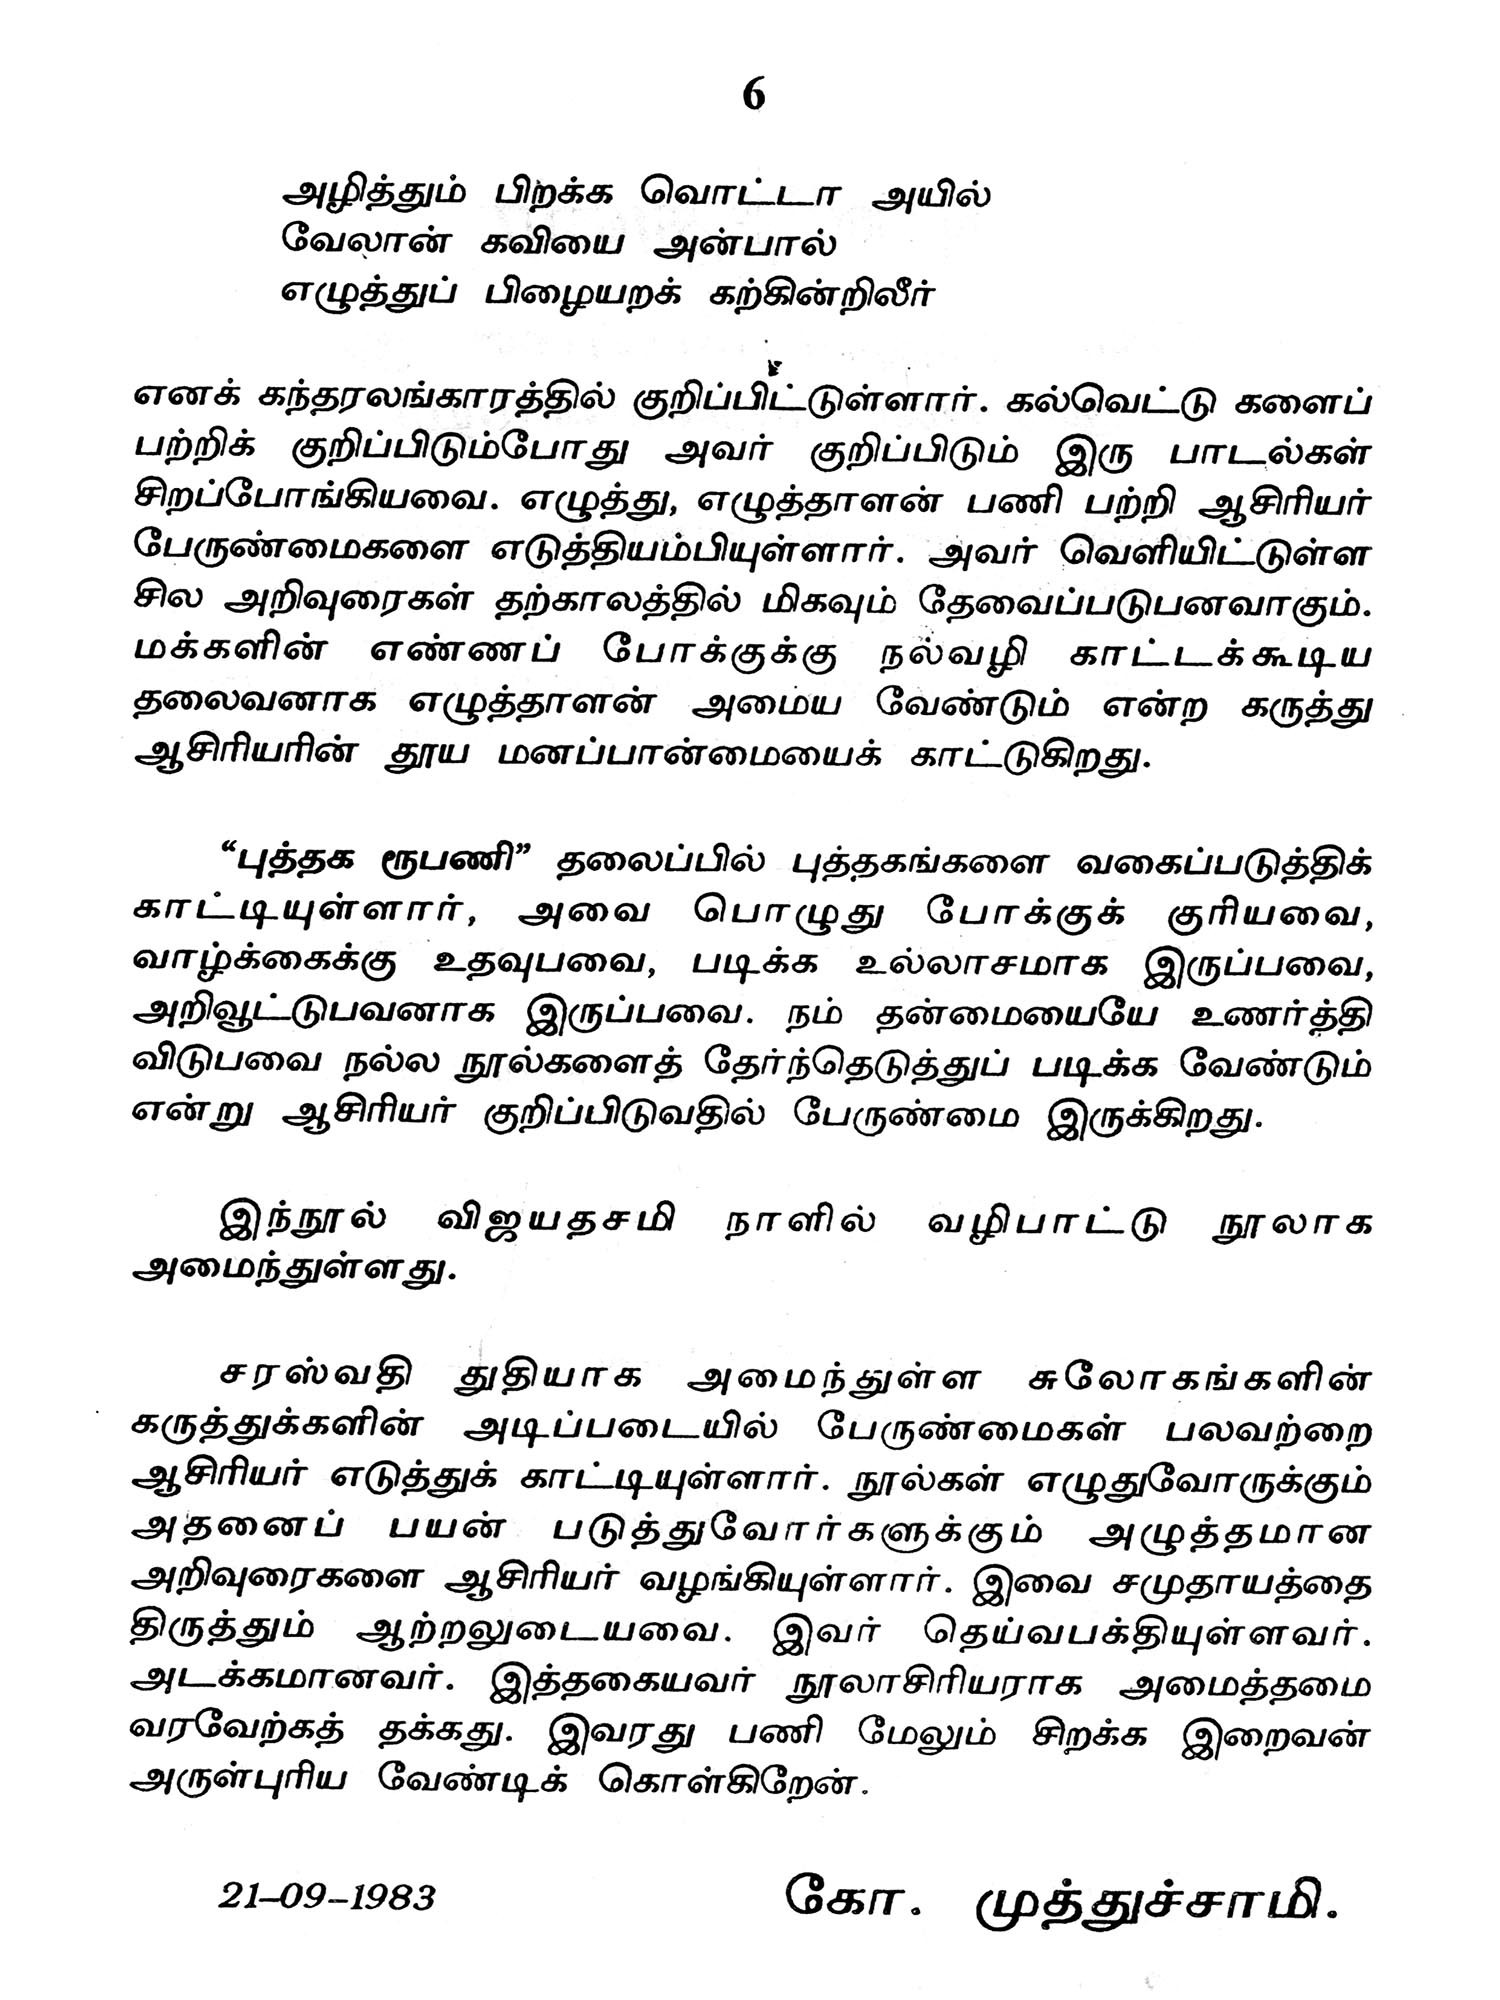 6
அழித்தும் பிறக்க வொட்டா அயில்
வேலான் கவியை அன்பால்
எழுத்துப் பிழையறக் கற்கின்றிலீர்
எனக் கந்தரலங்காரத்தில் குறிப்பிட்டுள்ளார். கல்வெட்டு களைப்
பற்றிக் குறிப்பிடும்போது அவர் குறிப்பிடும் இரு பாடல்கள்
சிறப்போங்கியவை. எழுத்து, எழுத்தாளன் பணி பற்றி ஆசிரியர்
பேருண்மைகளை எடுத்தியம்பியுள்ளார். அவர் வெளியிட்டுள்ள
சில அறிவுரைகள் தற்காலத்தில் மிகவும் தேவைப்படுபனவாகும்.
மக்களின் எண்ணப் போக்குக்கு நல்வழி காட்டக்கூடிய
தலைவனாக எழுத்தாளன் அமைய வேண்டும் என்ற கருத்து
ஆசிரியரின் தூய மனப்பான்மையைக் காட்டுகிறது.
“புத்தக ரூபணி” தலைப்பில் புத்தகங்களை வகைப்படுத்திக்
காட்டியுள்ளார், அவை பொழுது போக்குக் குரியவை,
வாழ்க்கைக்கு உதவுபவை, படிக்க உல்லாசமாக இருப்பவை,
அறிவூட்டுபவனாக இருப்பவை. நம் தன்மையையே உணர்த்தி
விடுபவை நல்ல நூல்களைத் தேர்ந்தெடுத்துப் படிக்க வேண்டும்
என்று ஆசிரியர் குறிப்பிடுவதில் பேருண்மை இருக்கிறது.
இந்நூல் விஜயதசமி நாளில் வழிபாட்டு நூலாக
அமைந்துள்ளது.
சரஸ்வதி துதியாக அமைந்துள்ள சுலோகங்களின்
கருத்துக்களின் அடிப்படையில் பேருண்மைகள் பலவற்றை
ஆசிரியர் எடுத்துக் காட்டியுள்ளார். நூல்கள் எழுதுவோருக்கும்
அதனைப் பயன் படுத்துவோர்களுக்கும் அழுத்தமான
அறிவுரைகளை ஆசிரியர் வழங்கியுள்ளார். இவை சமுதாயத்தை
திருத்தும் ஆற்றலுடையவை. இவர் தெய்வபக்தியுள்ளவர்.
அடக்கமானவர். இத்தகையவர் நூலாசிரியராக அமைத்தமை
வரவேற்கத் தக்கது. இவரது பணி மேலும் சிறக்க இறைவன்
அருள்புரிய வேண்டிக் கொள்கிறேன்.
21–09–1983 கோ. முத்துச்சாமி.